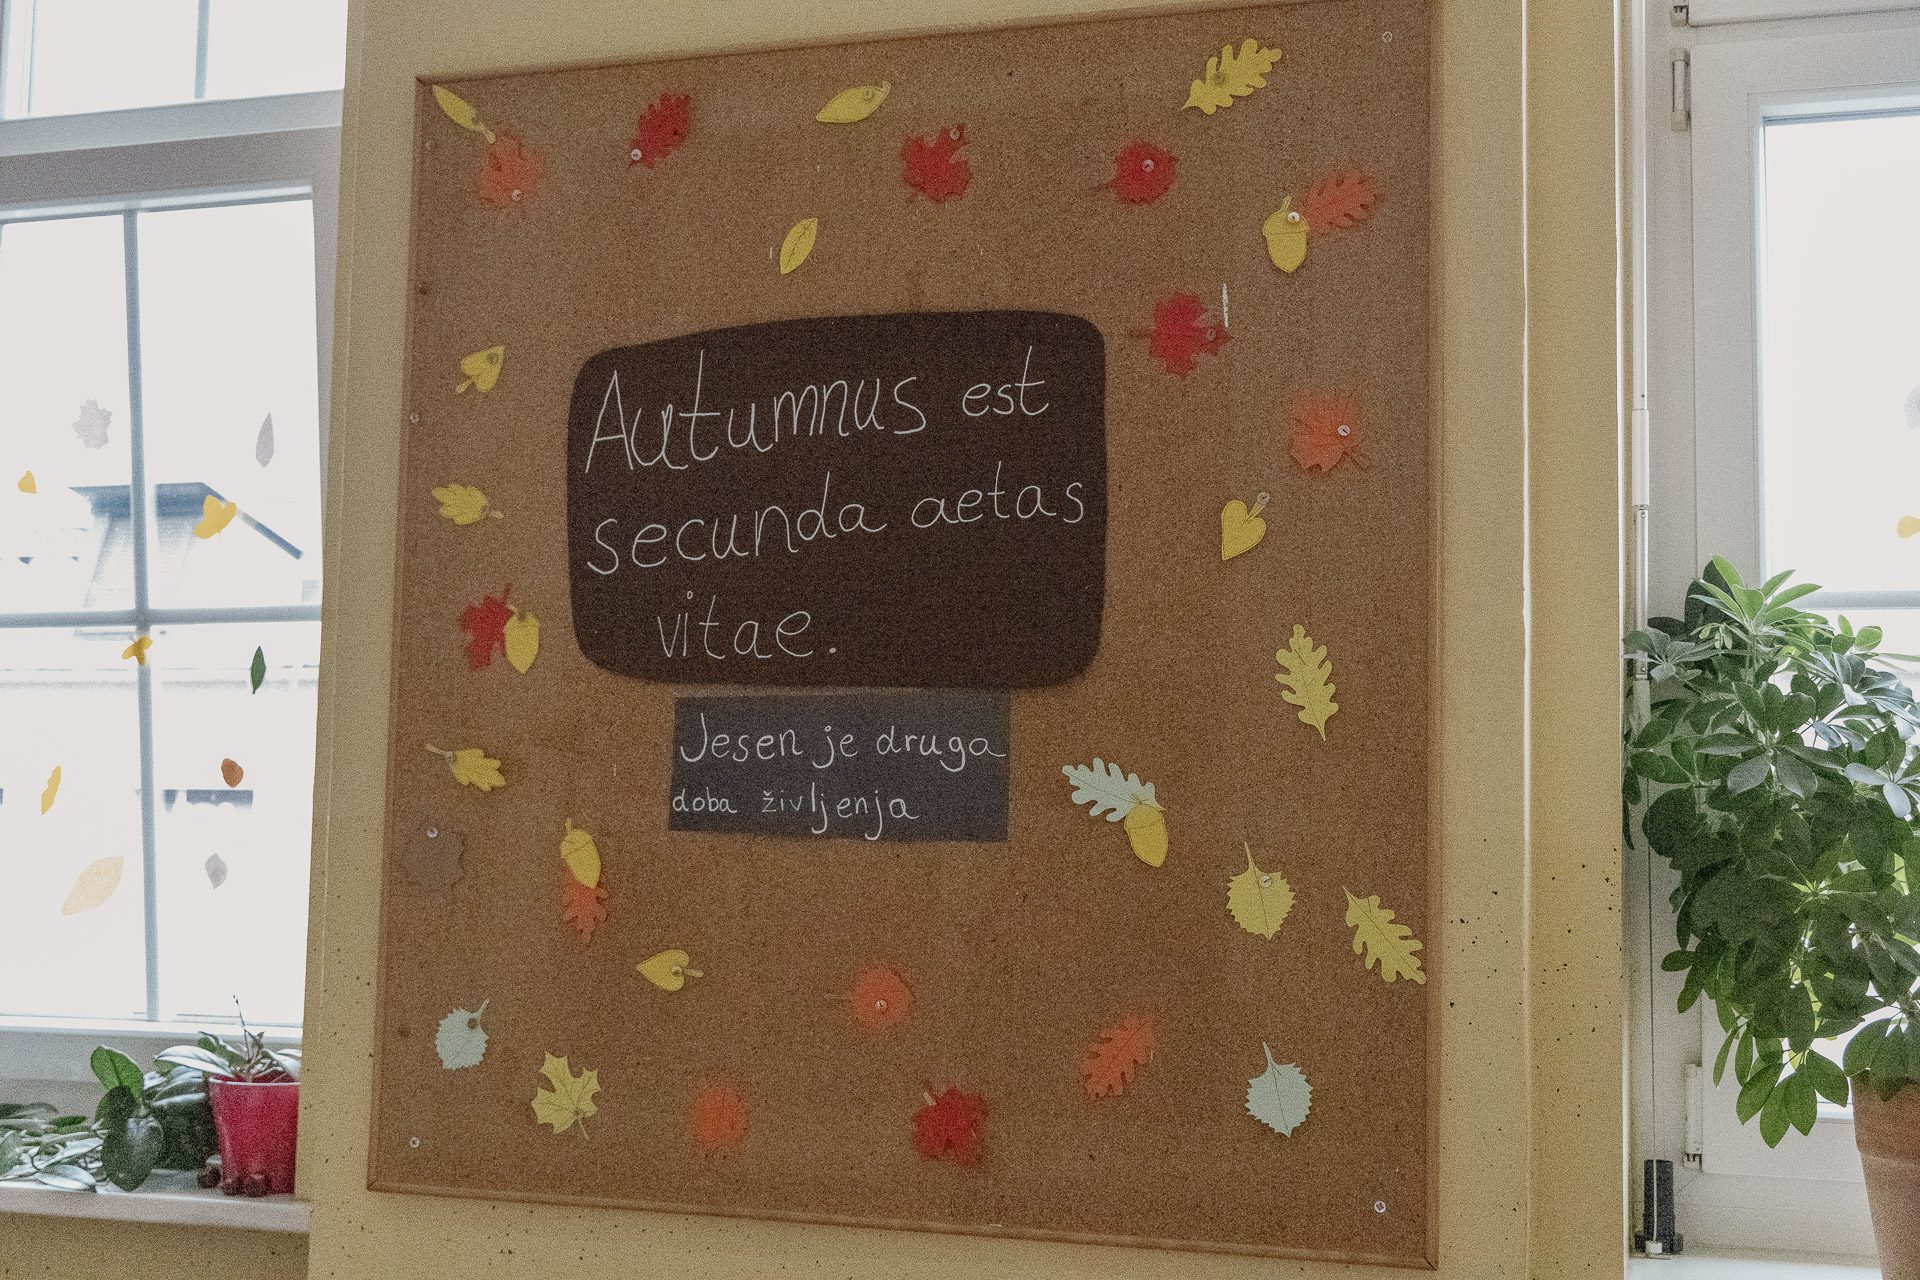 Autumnus est
secunda aetas
vitae.
Jesen je druga
doba življenja